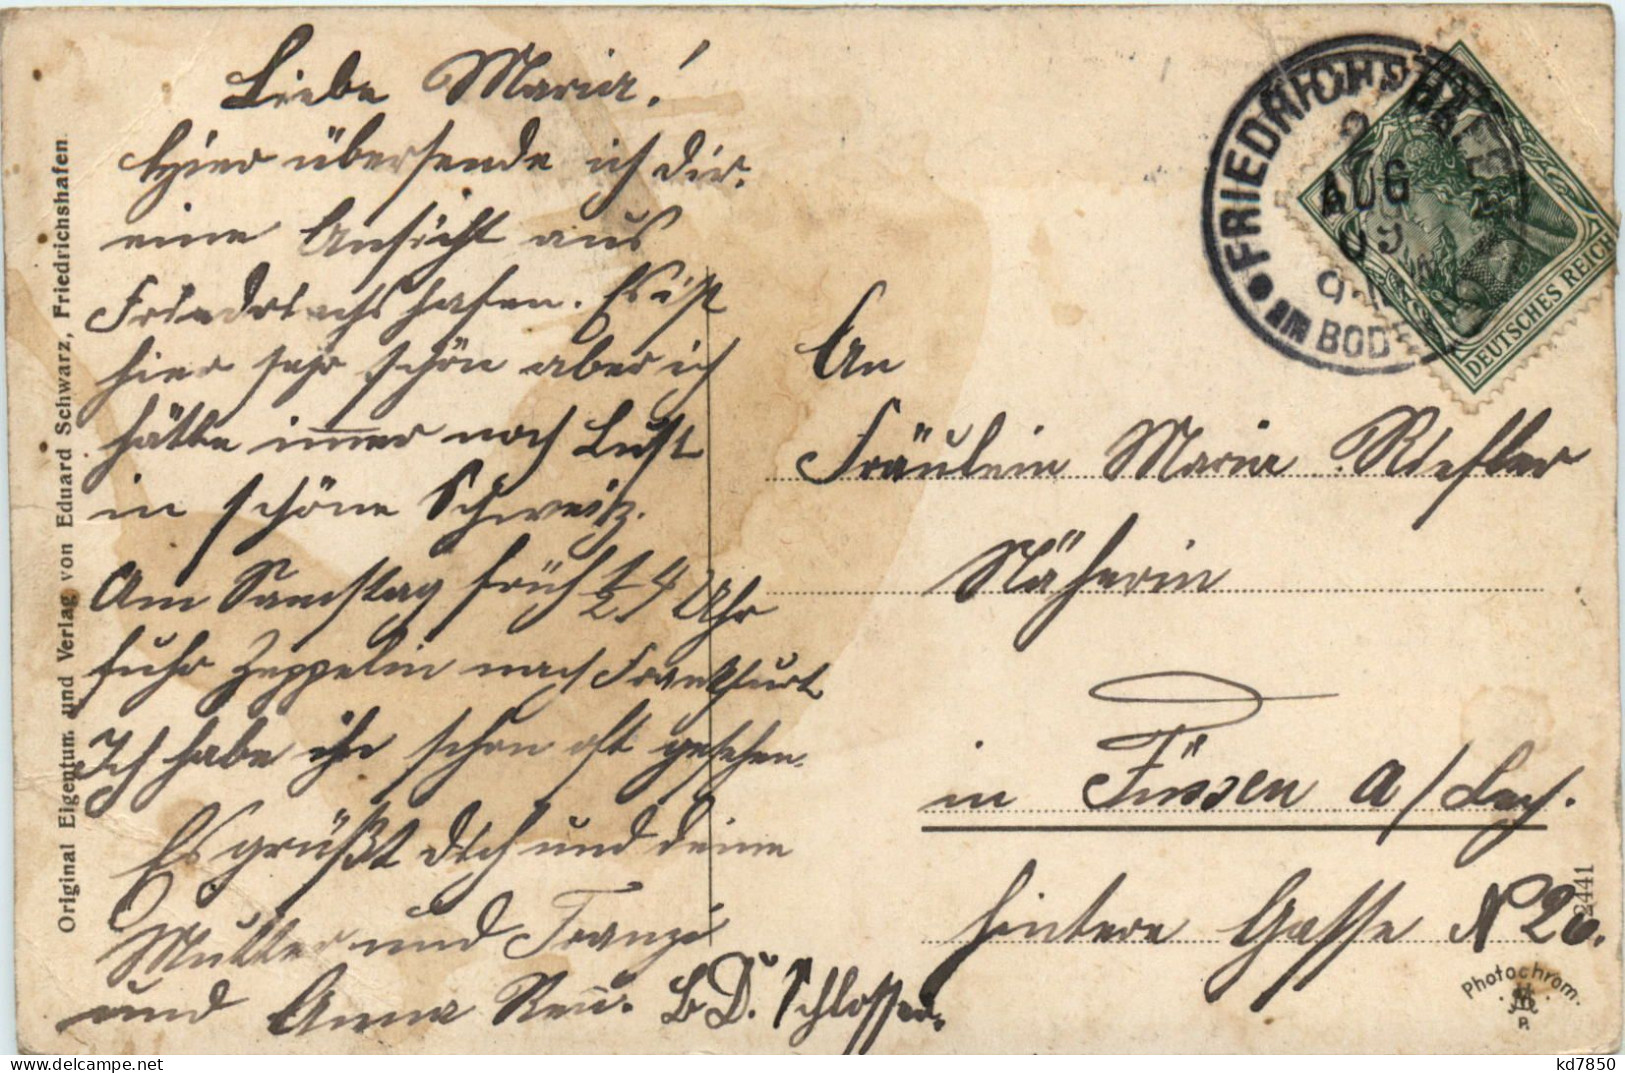 Liebe Maria!
Hier übersende ich dir.
eine Ansicht aus
Friedrichshafen. Es ist
hier sehr schön aber ich
hätte immer noch Lust
in schöne Schweitz.
Am Samstag früh ½ 4 Uhr
fuhr Zeppelin nach Frankfurt
Ich habe ihn schon oft gesehen.
Es grüßt dich und deine
Mutter und Franzi
und Anna
Schlosser.
Original Eigentum und Verlag von Eduard Schwarz, Friedrichshafen
FRIEDRICHSHAFEN
AUG
09
AM BODE
DEUTSCHES REICH
An
Fräulein Maria Riefler
Näherin
in Füssen a/Lech.
hintere Gasse N 26.
2441
Photochrom.
P.
kd7850